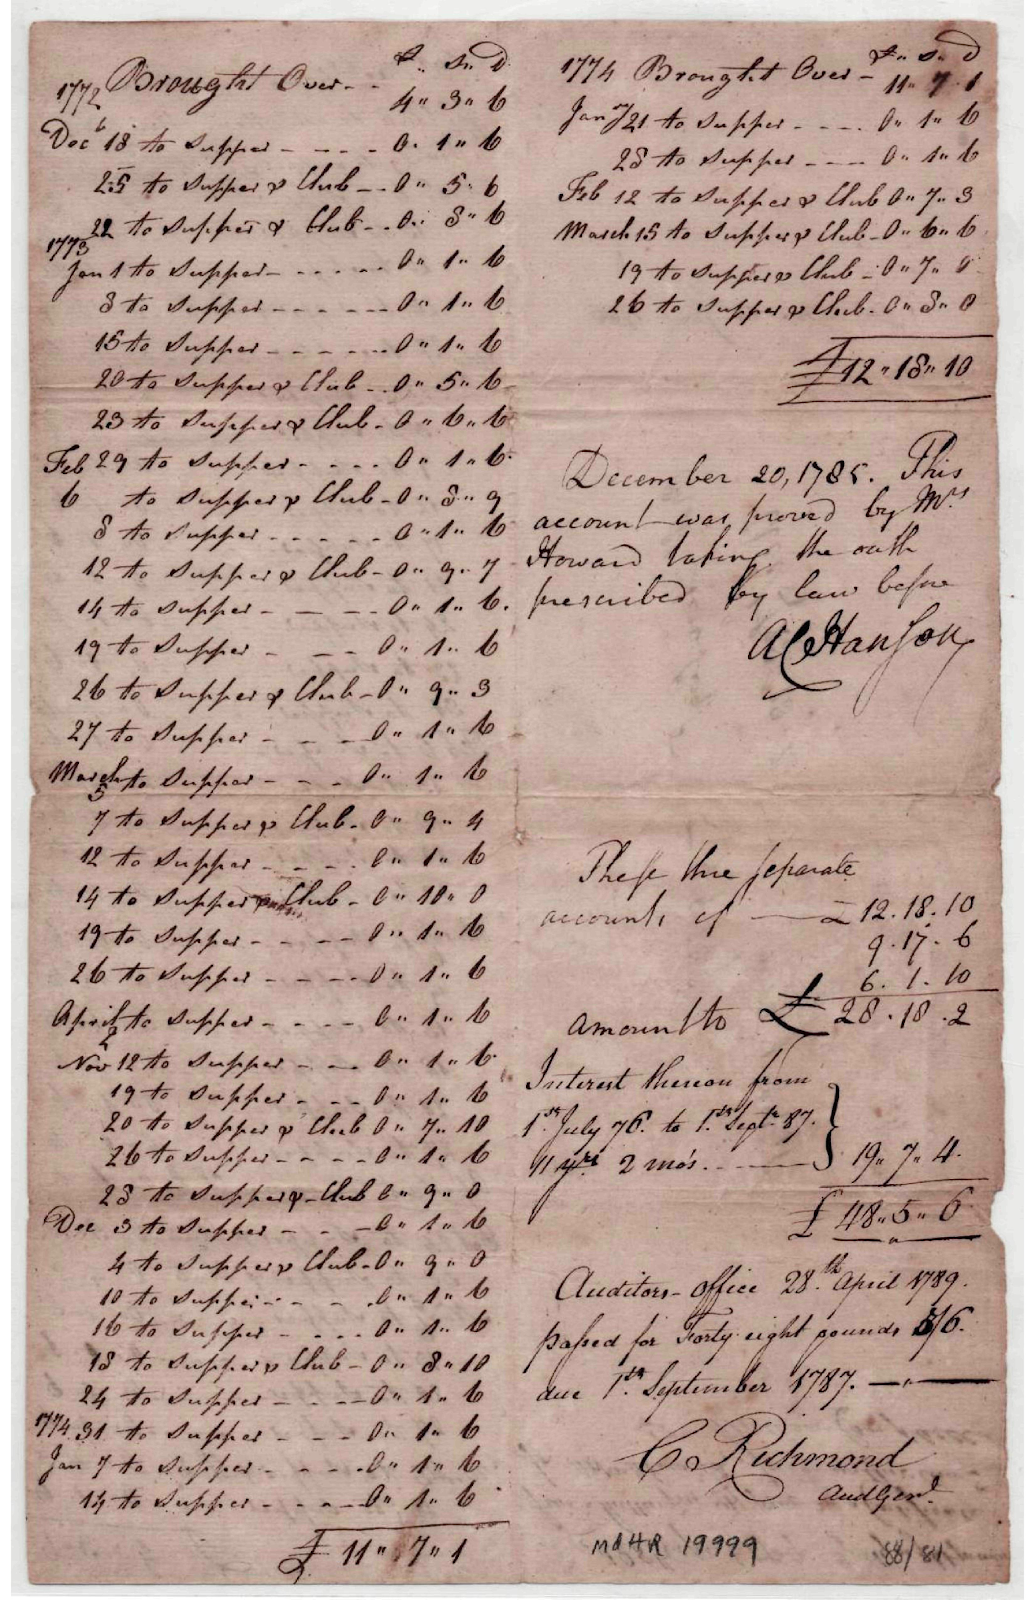 £ " S " D
1772 Brought Over - - 4 " 3 " 6
Decr 18 to Supper - - - - 0 " 1 " 6
25 to Supper & Club - - 0 " 5 " 6
22 to Supper & Club - - 0 " 8 " 6
1773
Jan 1 to Supper - - - - - 0 " 1 " 6
8 to Supper - - - - - 0 " 1 " 6
15 to Supper - - - - - 0 " 1 " 6
20 to Supper & Club - - 0 " 5 " 6
23 to Supper & Club - 0 " 6 " 6
Feb 29 to Supper - - - - 0 " 1 " 6
6 to Supper & Club - 0 " 8 " 9
8 to Supper - - - - - 0 " 1 " 6
12 to Supper & Club - 0 " 9 " 7
14 to Supper - - - - 0 " 1 " 6
19 to Supper - - - 0 " 1 " 6
26 to Supper & Club - 0 " 9 " 3
27 to Supper - - - 0 " 1 " 6
March 5 to Supper - - - 0 " 1 " 6
7 to Supper & Club - 0 " 9 " 4
12 to Supper - - - - 0 " 1 " 6
14 to Supper & Club - 0 " 10 " 0
19 to Supper - - - - 0 " 1 " 6
26 to Supper - - - - 0 " 1 " 6
April 2 to Supper - - - - 0 " 1 " 6
Nov 12 to Supper - - - 0 " 1 " 6
19 to Supper - - - - 0 " 1 " 6
20 to Supper & Club 0 " 7 " 10
26 to Supper - - - - 0 " 1 " 6
28 to Supper & Club 0 " 9 " 0
Dec 3 to Supper - - - 0 " 1 " 6
4 to Supper & Club - 0 " 9 " 0
10 to Supper - - - 0 " 1 " 6
16 to Supper - - - - 0 " 1 " 6
18 to Supper & Club - 0 " 8 " 10
24 to Supper - - - - 0 " 1 " 6
1774 31 to Supper - - - 0 " 1 " 6
Jan 7 to Supper - - - - 0 " 1 " 6
14 to Supper - - - - 0 " 1 " 6
£ 11 " 7 " 1
£ " S " D
1774 Brought Over - 11 " 7 " 1
Jany 21 to Supper - - - - 0 " 1 " 6
28 to Supper - - - - 0 " 1 " 6
Feb 12 to Supper & Club 0 " 7 " 3
March 15 to Supper & Club - 0 " 6 " 6
19 to Supper & Club - 0 " 7 "
26 to Supper & Club - 0 " 8 " 0
£ 12 " 18 " 10
December 20, 1785. This
account was proved by Mrs
Howard taking the oath
prescribed by law before
A C Hanson
These three separate
accounts of —— £ 12. 18. 10
9. 17. 6
6. 1. 10
amount to £ 28. 18. 2
Interest thereon from
1st July 76. to 1st Septr 87. }
11 yrs 2 mos. —— 19 " 7 " 4.
£ 48 " 5 " 6
Auditors - office 28th April 1789.
passed for Forty eight pounds 5/6.
due 1st September 1787. —"—
C. Richmond
Aud Genl.
MdHR 19999
88/81